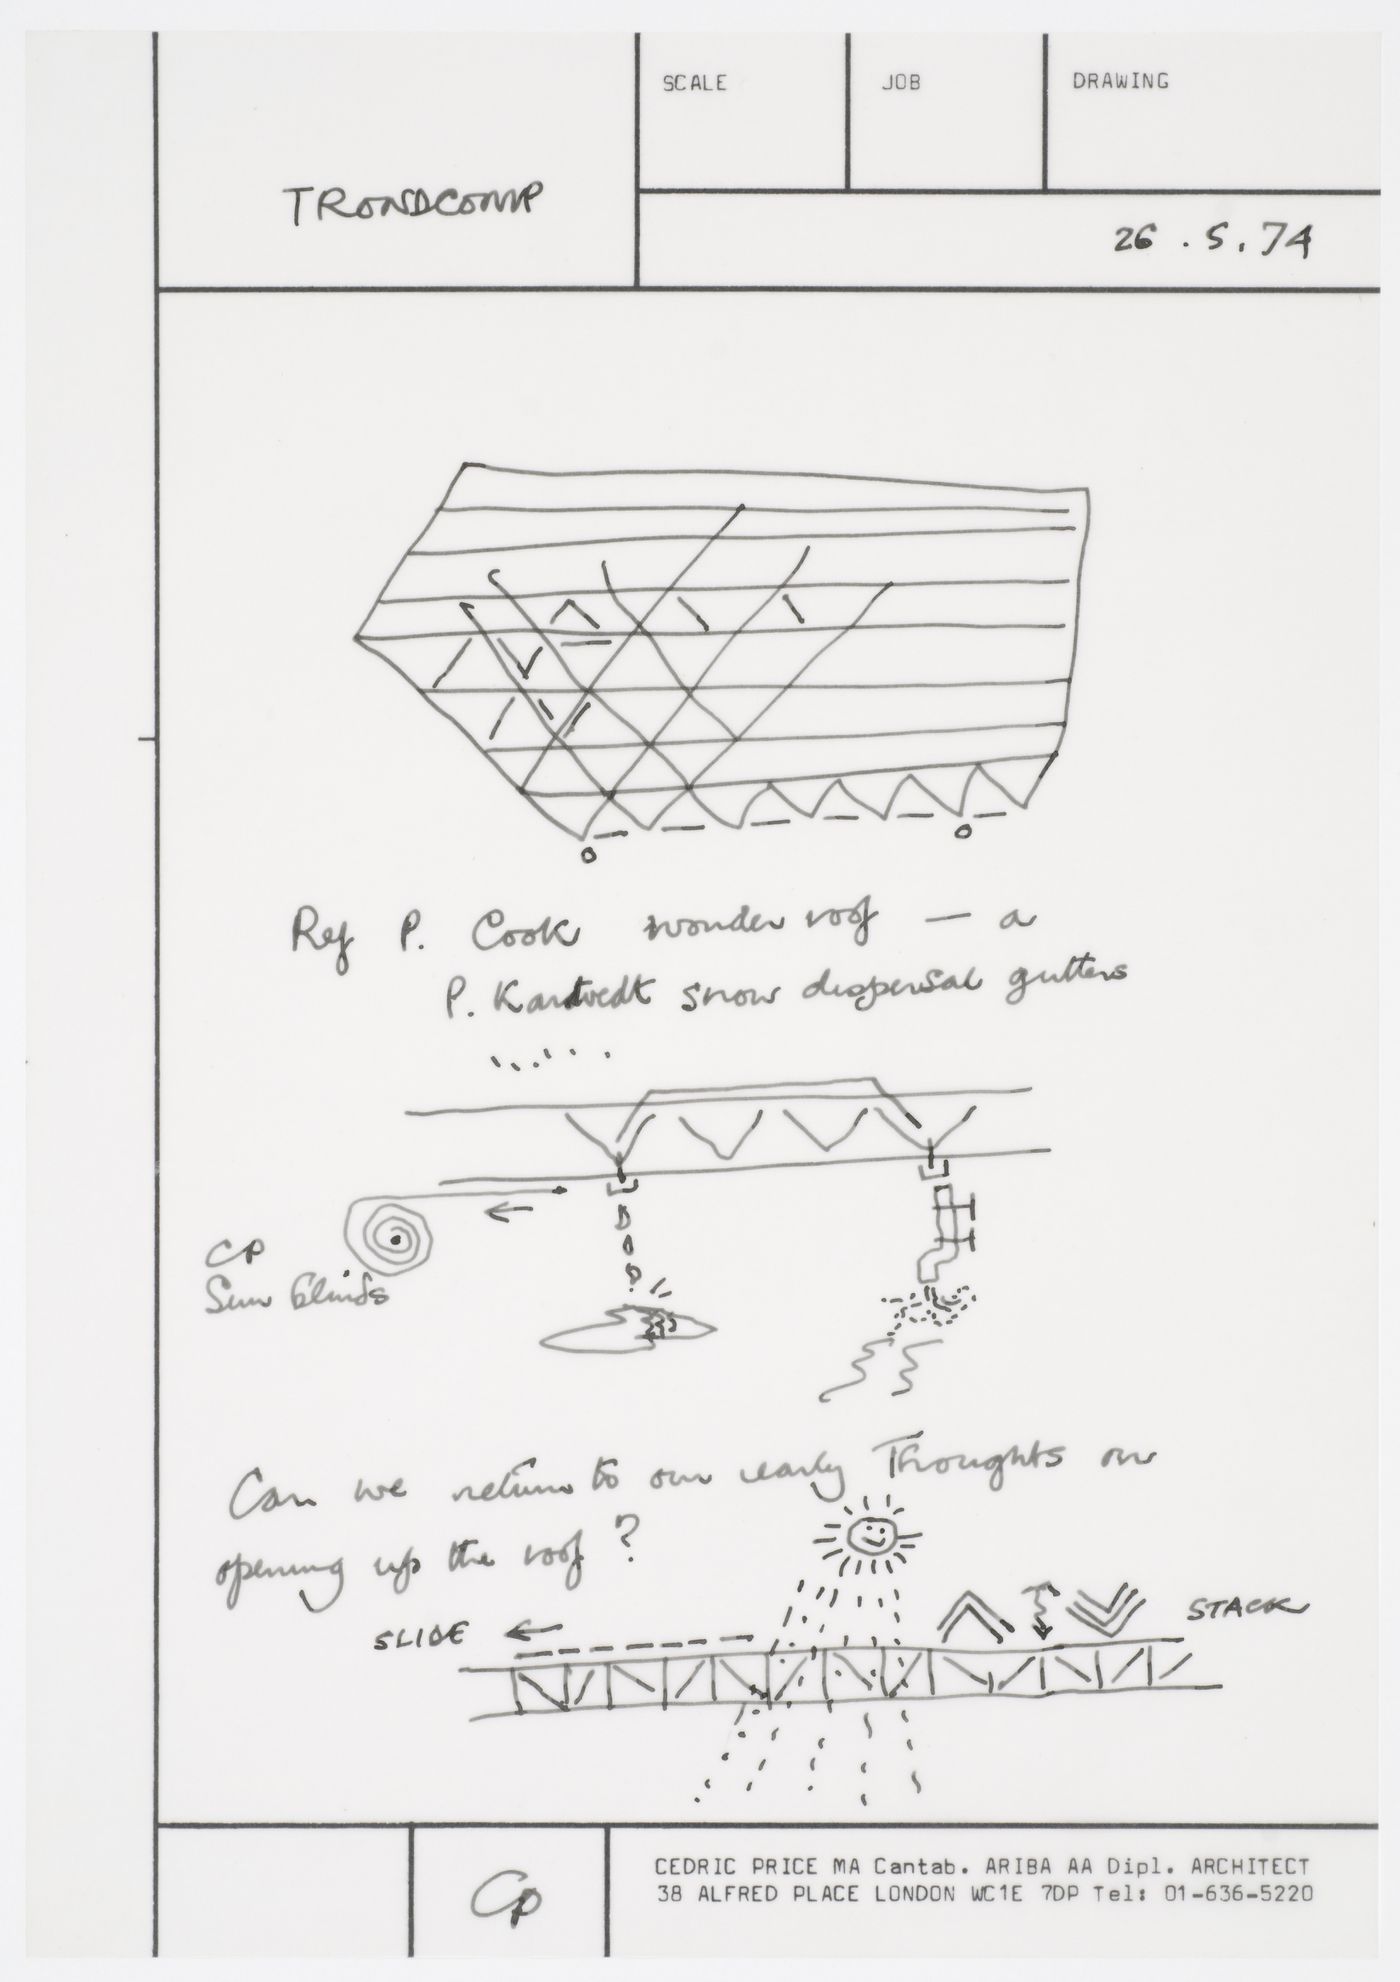 SCALE
JOB
DRAWING
TRONDCOMP
26 . 5 . 74
Ref P. Cook wonder roof — a
P. Kardvedt snow dispersal gutters
CP
Sun blinds
Can we return to our early Thoughts on
opening up the roof ?
SLIDE
STACK
CP
CEDRIC PRICE MA Cantab. ARIBA AA Dipl. ARCHITECT
38 ALFRED PLACE LONDON WC1E 7DP Tel: 01-636-5220